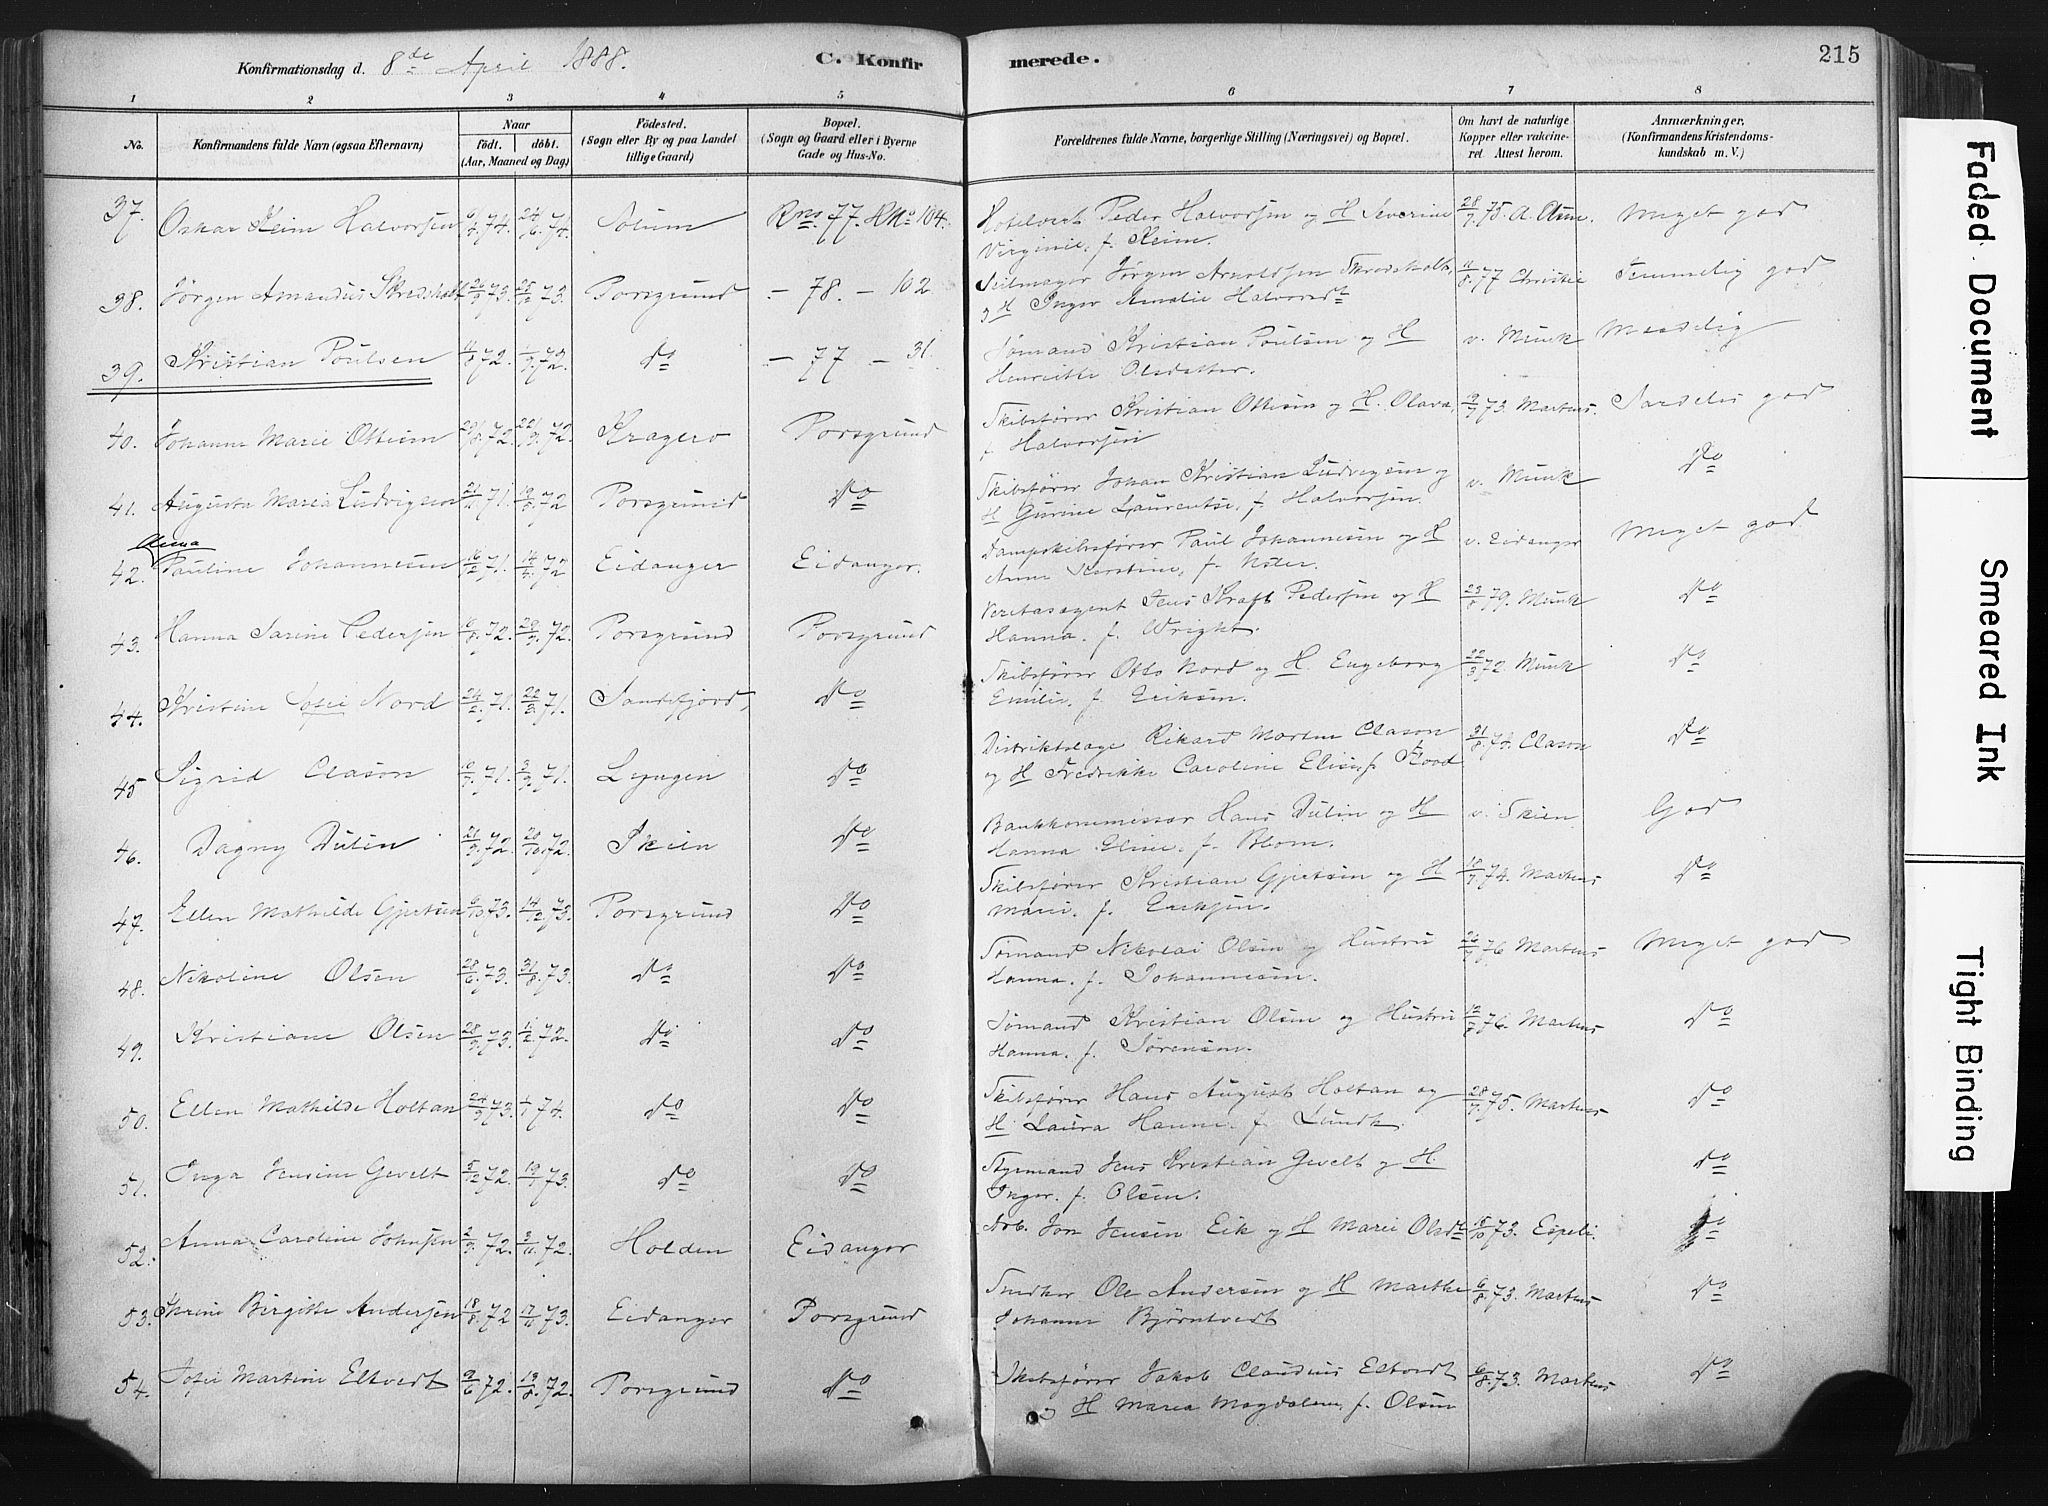 Konfirmationsdag d. 8de April 1888. C. Konfirmerede. 215
1 2 3 4 5 6 7 8
No. Konfirmandens fulde Navn (ogsaa Efternavn) Naar Født. døbt. (Aar, Maaned og Dag) Fødested. (Sogn eller By og paa Landet tillige Gaard) Bopæl. (Sogn og Gaard eller i Byerne Gade og Hus-No. Forældrenes fulde Navne, borgerlige Stilling (Næringsvei) og Bopæl. Om havt de naturlige Kopper eller vakcineret. Attest herom. Anmærkninger. (Konfirmandens Kristendomskundskab m. V.)
37. Oskar Keim Halvorsen 74. 24/6 74. Solum Rns. 77. HNo 104. Hotelvert Peder Halvorsen og H Severine 28/7 75. A. Olsen Meget god
Virginie, f. Keim.
38. Jørgen Amandus Skredshall 73. 73. Porsgrund - 78. - 102. Seilmager Jørgen Arnoldsen 11/8 77 Christie Temmelig god
og H Inger Amalie Halvorsdt
39. Kristian Poulsen 72. 72. do - 77 - 31. Sømand Kristian Poulsen og H v. Munk Maadelig
Henriette Olsdatter.
40. Johanne Marie Ottesen 72. 72. Kragerø Porsgrund Skibsfører Kristian Ottesen og H. Olava, 73. Martens. Særdeles god
f. Halvorsen
41. Augusta Maria Ludvigsen 71. 72 Porsgrund do Skibsfører Johan Kristian Ludvigsen og v. Munk do
H Gurine Laurentse, f. Halvorsen.
42. Anna Pauline Johannesen 71. 72 Eidanger Eidanger. Dampskibsfører Paul Johannesen og H v. Eidanger Meget god
Anne Kirstine, f.
43. Hanna Sarine Pedersen 72. 72. Porsgrund Porsgrund Veritasagent Jens Kraft Pedersen og H 79. Munk do
Hanna. f. Wright.
44. Kristine Sofie Nord 71. 71. Sandefjord, do Skibsfører Otto Nord og H. Engeborg 22/3 72. Munk do
Emilie, f. Eriksen.
45 Sigrid Clason 71. 71. Lyngen do Distriktslæge Rikard Morten Clason Clason do
og H Fredrikke Caroline Elise, f. Flood
46. Dagny Dulin 72. 20/10 72. Skien do Bankkommissær Hans Dulin og H v. Skien God
Hanna Eline. f. Blom.
47. Ellen Mathilde Gjertsen 73. 14/12 73. Porsgrund do Skibsfører Kristian Gjertsen og H 18/7 74. Martens do
Marie. f. Eriksen.
48. Nikoline Olsen 28/6 73. 31/8 73. do do Sømand Nikolai Olsen og Hustru 26/7 76 Martens Meget god
Hanna. f. Johannesen.
49. Kristiane Olsen 73. 72. do do Sømand Kristian Olsen og Hustru 12/7 76. Martens do
Hanna. f. Sørensen.
50. Ellen Mathilde Holtan 73. 74. do do Skibsfører Hans August Holtan og 28/7 75. Martens do
H. Laura Hanne. f. Lundt.
51. Inga Jensine Gevelt 5/12 72. 19/1 73. do do Styrmand Jens Kristian Gevelt og H. do
Inger. f. Olsen.
52. Anna Caroline Johnsen 2/9 72. 3/11 72. Holden Eidanger Arb. Jon Jensen Eik og H Marie Olsdt 15/10 73. Espeli. do
53. Thrine Birgitte Andersen 18/8 72 73. Eidanger Porsgrund Snedker Ole Andersen og H Marthe 6/8 73. Martens do
Johanne Bjørntvedt
54. Sofie Martine Eltvedt 2/6 72. 19/8 72. Porsgrund do Skibsfører Jakob Claudius Eltvedt 6/8 73. Martens do
og H Maria Magdalene, f. Olsen
Faded Document
Smeared Ink
Tight Binding